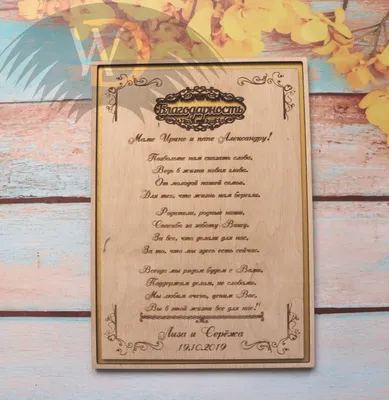 Благодарность
Маме Ирине и папе Александру!
Позвольте нам сказать слова,
Ведь в жизни новая глава,
От молодой нашей семьи,
Для тех, что жизнь нам берегли.
Родители, родные наши,
Спасибо за заботу Вашу,
За все, что делали для нас,
За то, что мы здесь есть сейчас.
Всегда мы рядом будем с Вами,
Поддержим делом, не словами,
Мы любим очень, ценим Вас,
Вы в этой жизни все для нас!
Лиза и Серёжа
19.10.2019